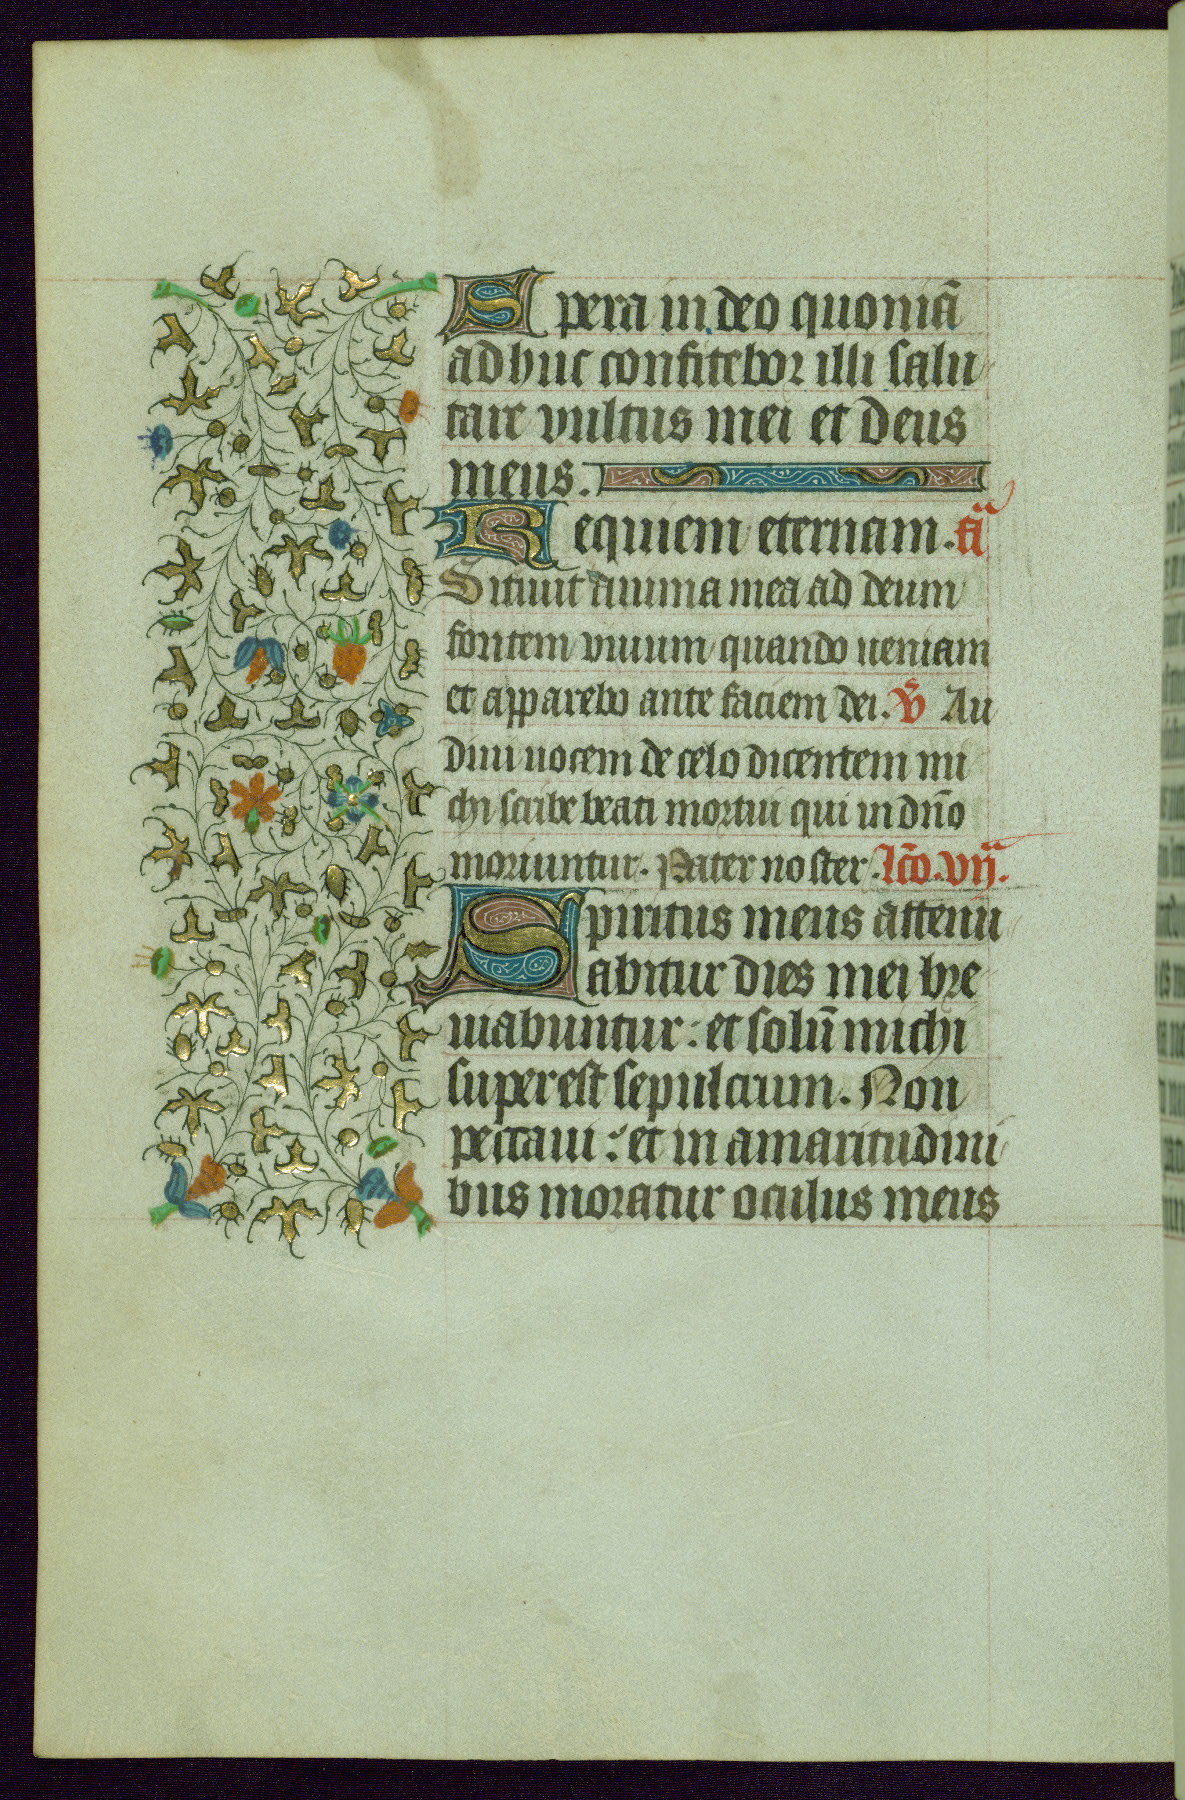 Spera in deo quoniā
adhuc confitebor illi salu
tare vultus mei et deus
meus.
Requiem eternam. ā
Sitiuit anima mea ad deum
fontem viuum quando ueniam
et apparebo ante faciem dei. v̄ Au
diui uocem de celo dicentem mi
chi scribe beati mortui qui in dn̄o
moriuntur. Pater noster. lc̄o. vij.
Spiritus meus attenu
abitur dies mei bre
uiabuntur: et solū michi
superest sepulcrum. Non
peccaui: et in amaritudini
bus moratur oculus meus